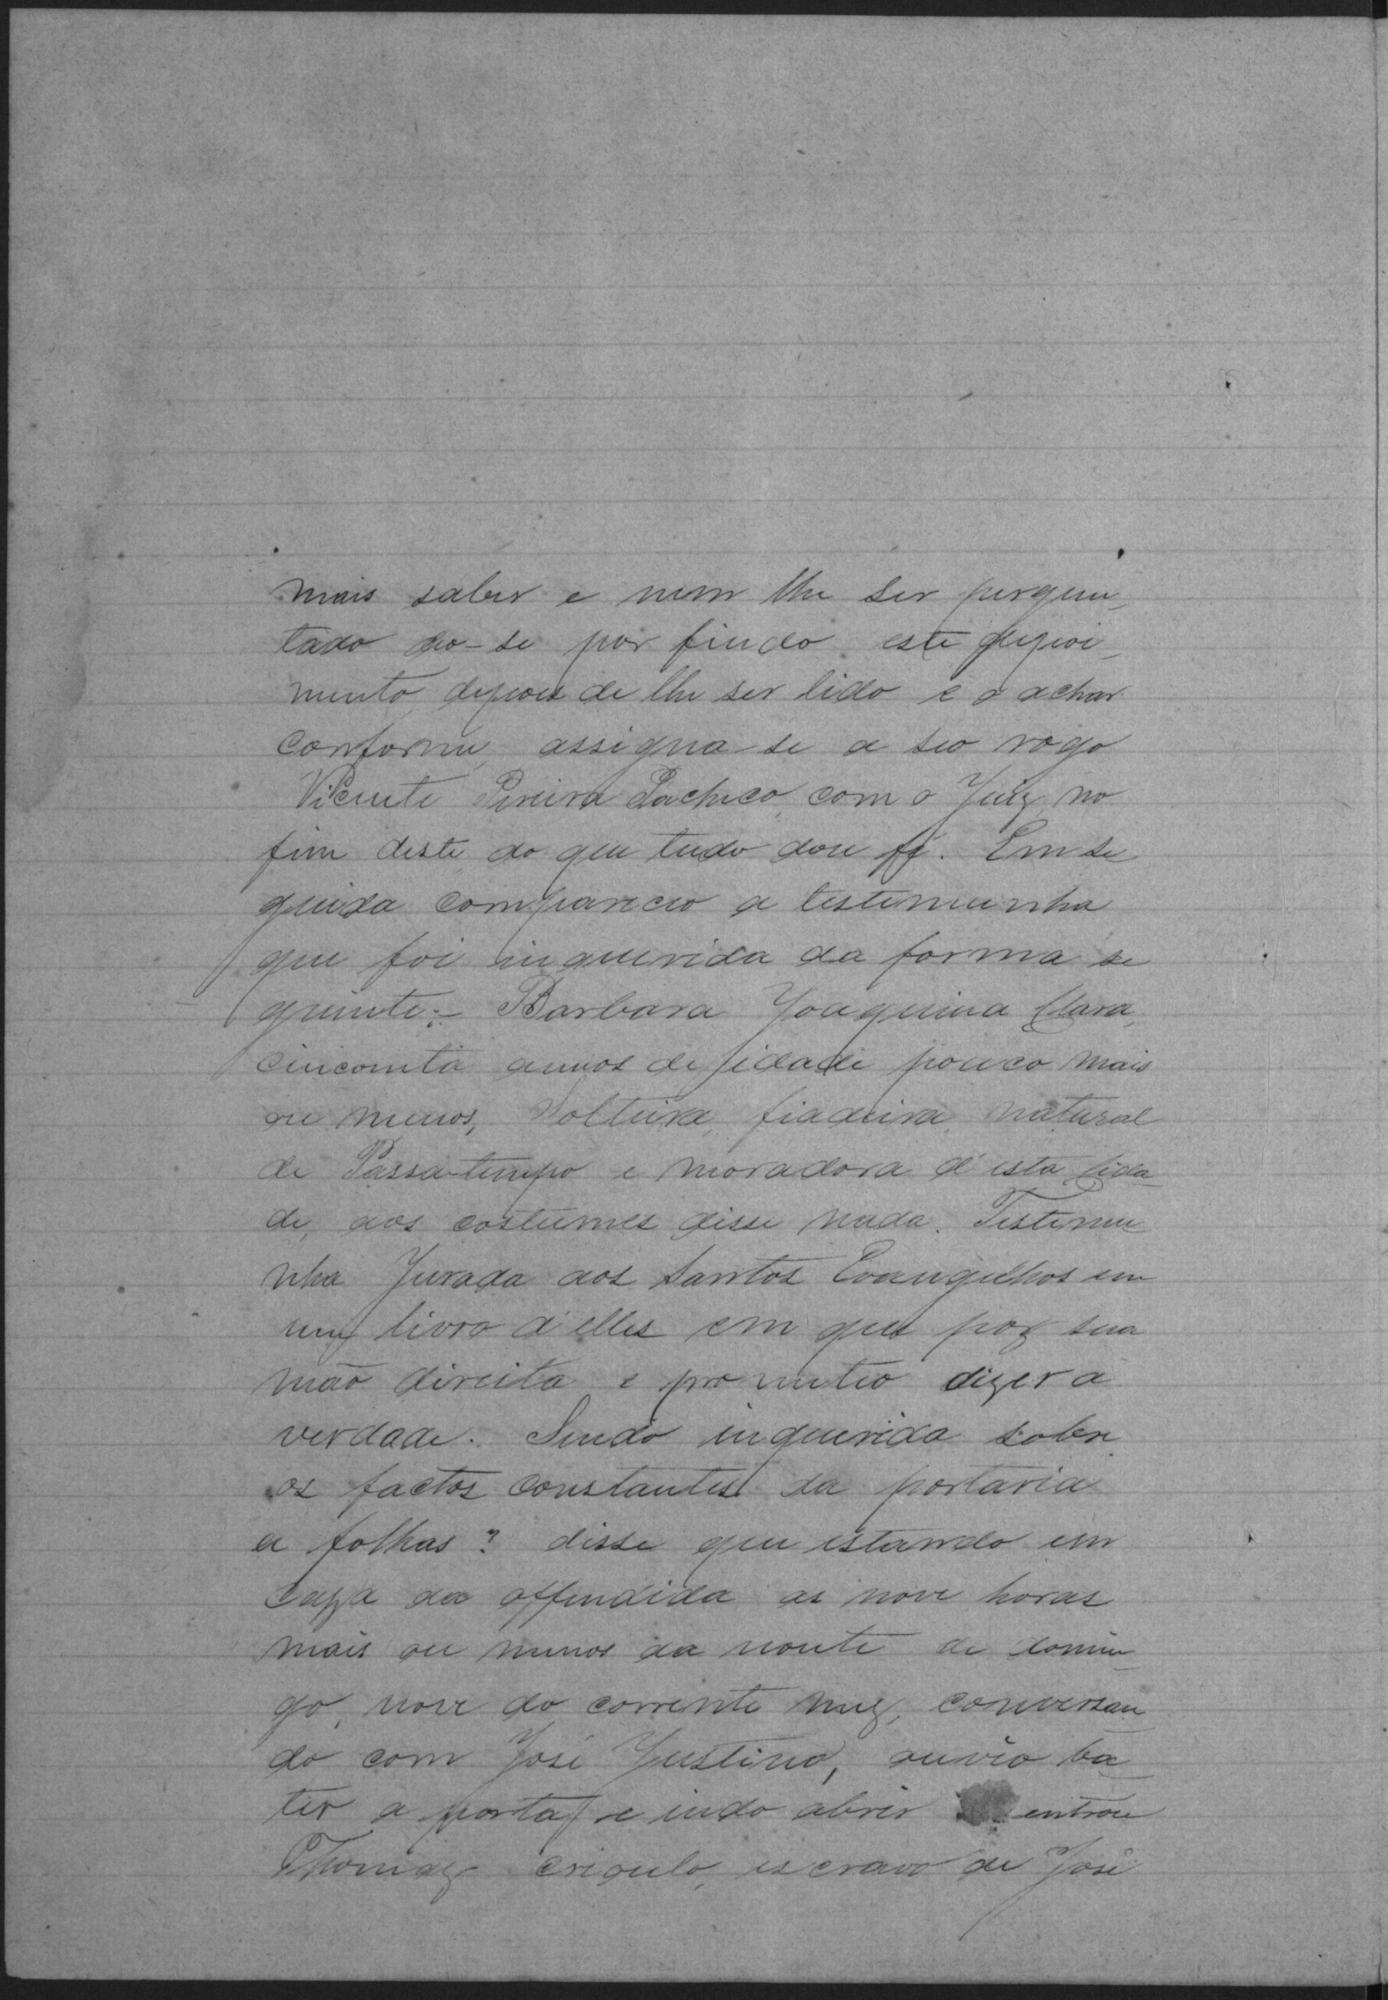 mais saber e nem lhe ser pergun-
tado do-se por findo este depoi-
mento, depois de lhe ser lido e o achar
conforme, assigna-se a seo rogo
Vicente Pereira Pacheco, com o Juiz no
fim deste, do que tudo dou fé. Em se
guida compareceo a testemunha
que foi inquerida da forma se
guinte:- Barbara Joaquina Clara,
cincoenta annos de idade pouco mais
ou menos, solteira, fiadeira, natural
de Passatempo e moradora d'esta Cida-
de, aos costumes disse nada. Testemu
nha Jurada aos Santos Evangelhos em
um livro d'elles em que poz sua
mão direita e prometteo dizer a
verdade. Sendo inquerida sobre
os factos constantes da portaria
a folhas? disse que estando em
caza da offendida as nove horas
mais ou menos da noute de domin-
go, nove do corrente mez, conversan
do com José Justino, ouvio ba-
ter a porta e indo abrir entrou
Thomaz crioulo, escravo de José